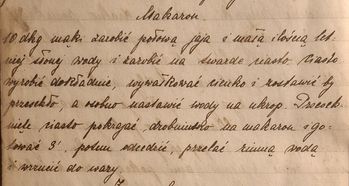 Makaron
10 dkg mąki zarobić połową jaja i małą ilością let-
niej słonej wody i zarobić na twarde ciasto. Ciasto
wyrobić dokładnie, wywałkować cienko i zostawić by
przeschło, a osobno nastawić wody na ukrop. Przesch-
nięte ciasto pokrajać drobniutko na makaron i go-
tować 3', potem odcedzić, przelać zimną wodą
i wrzucić do wazy.